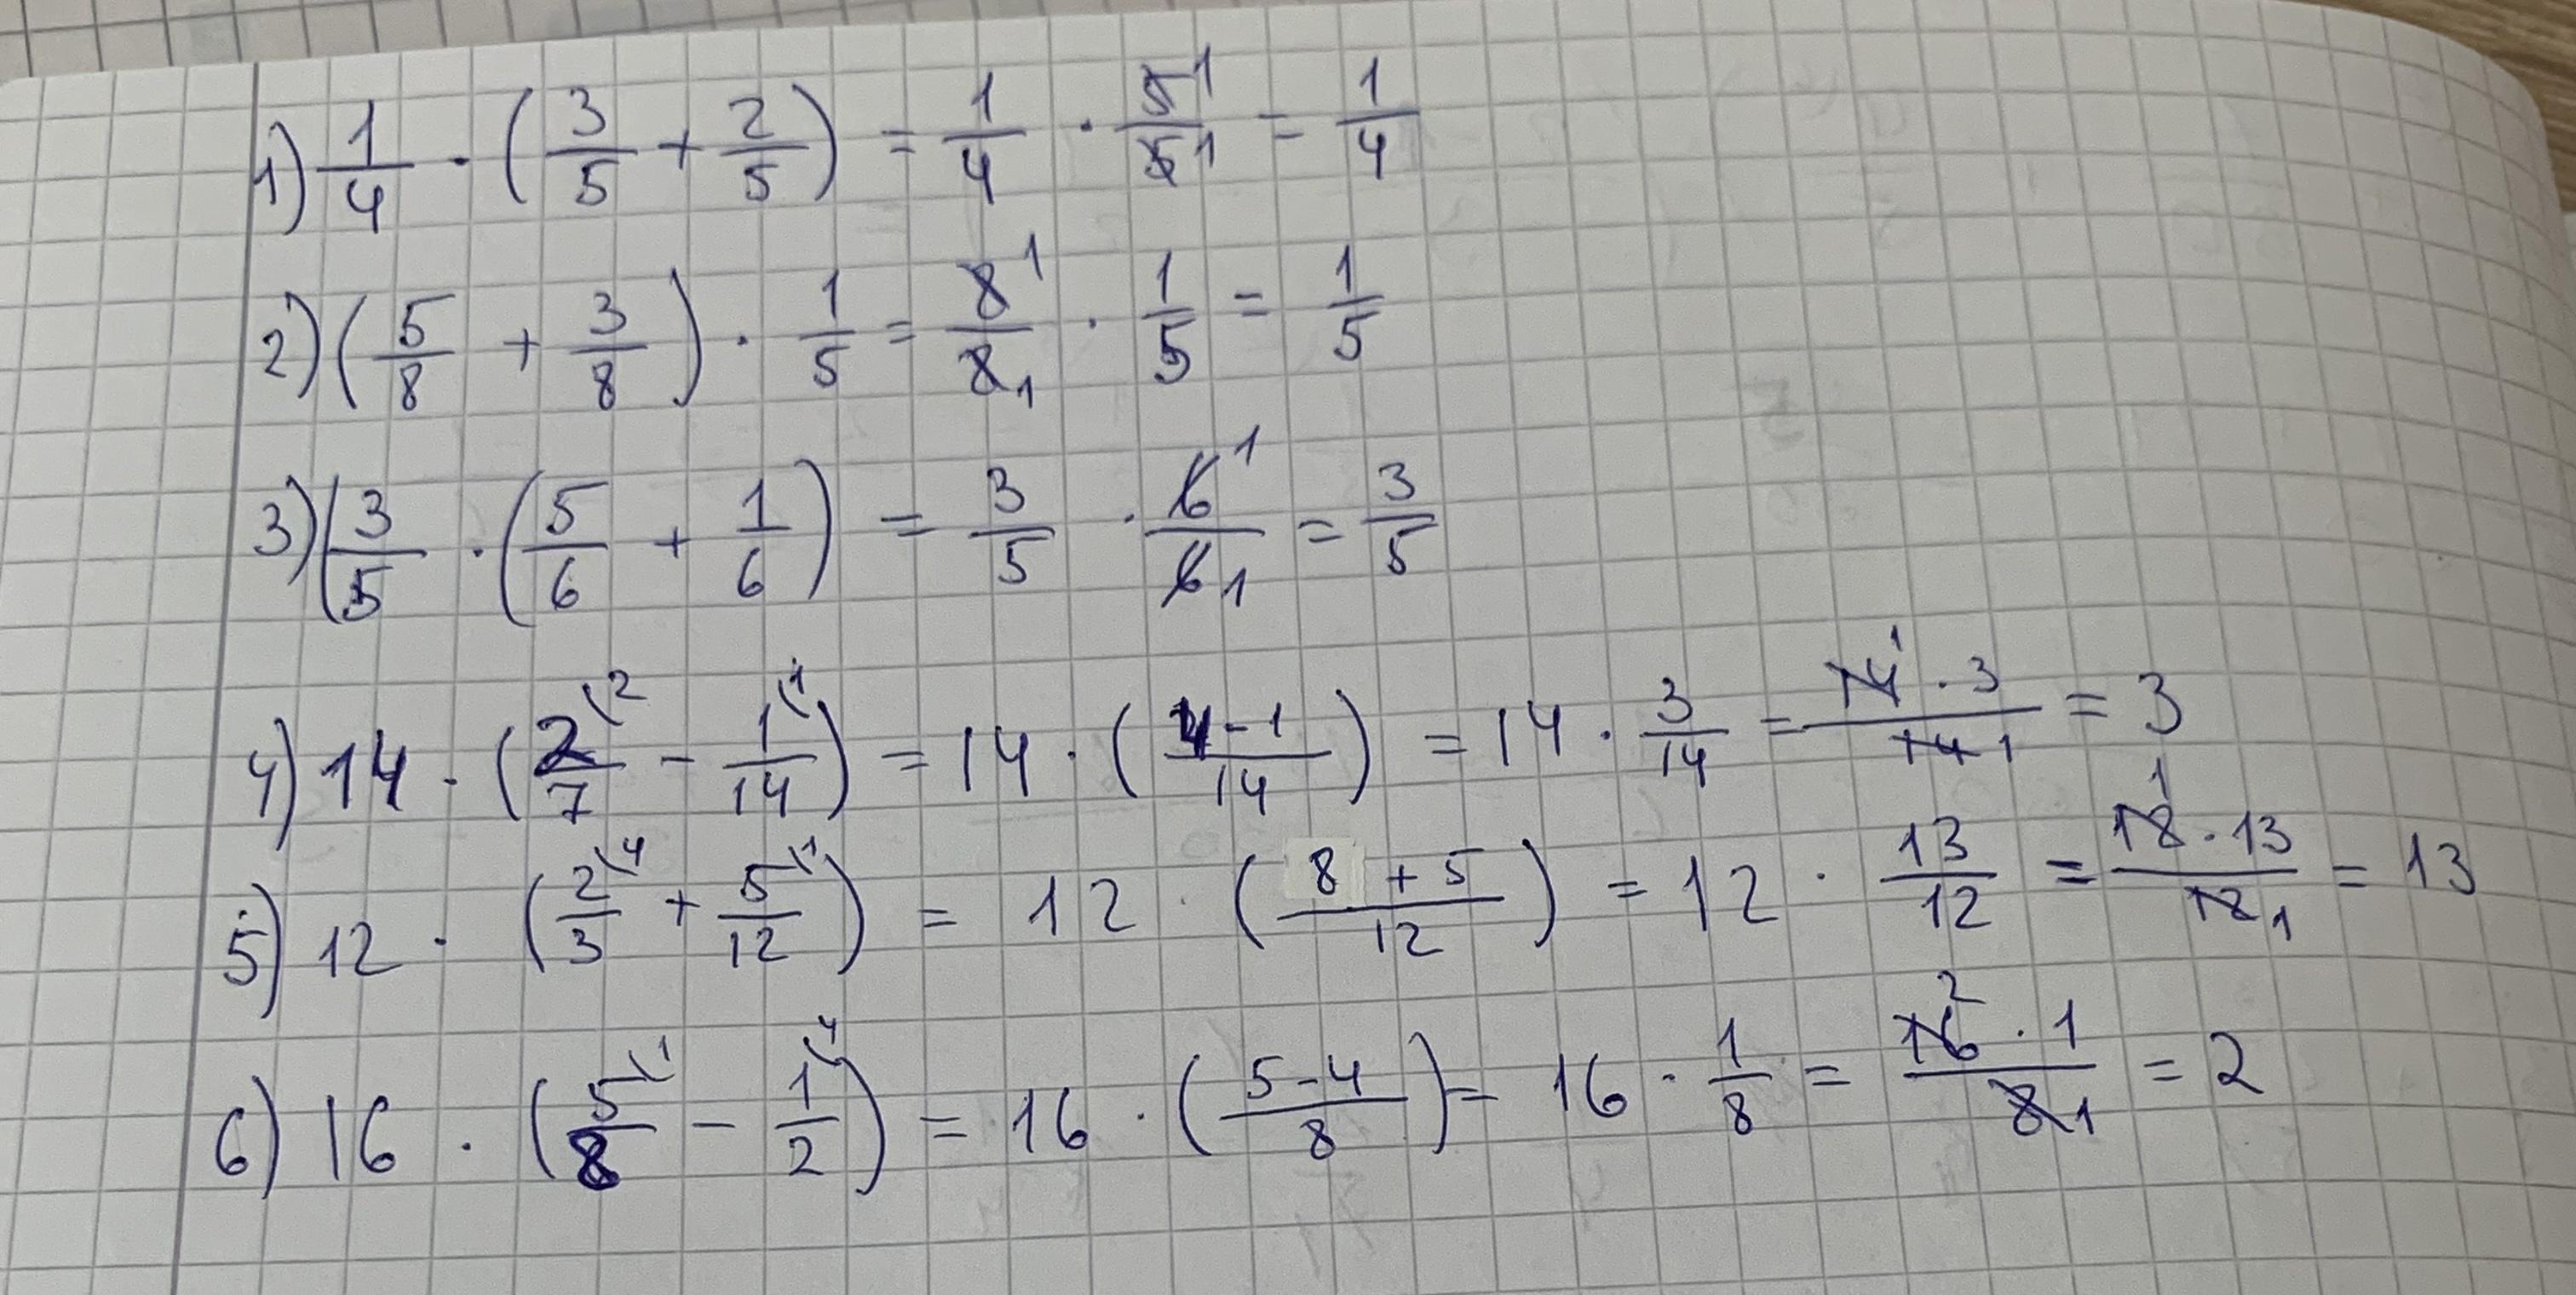 1) 1/4 · (3/5 + 2/5) = 1/4 · 5¹/5₁ = 1/4
2) (5/8 + 3/8) · 1/5 = 8¹/8₁ · 1/5 = 1/5
3) (3/5 · (5/6 + 1/6) = 3/5 · 6¹/6₁ = 3/5
4) 14 · (2\²/7 - 1\¹/14) = 14 · (4-1/14) = 14 · 3/14 = 14¹ · 3/14₁ = 3
5) 12 · (2\⁴/3 + 5\¹/12) = 12 · (8+5/12) = 12 · 13/12 = 12¹ · 13/12₁ = 13
6) 16 · (5\¹/8 - 1\⁴/2) = 16 · (5-4/8) = 16 · 1/8 = 16² · 1/8₁ = 2